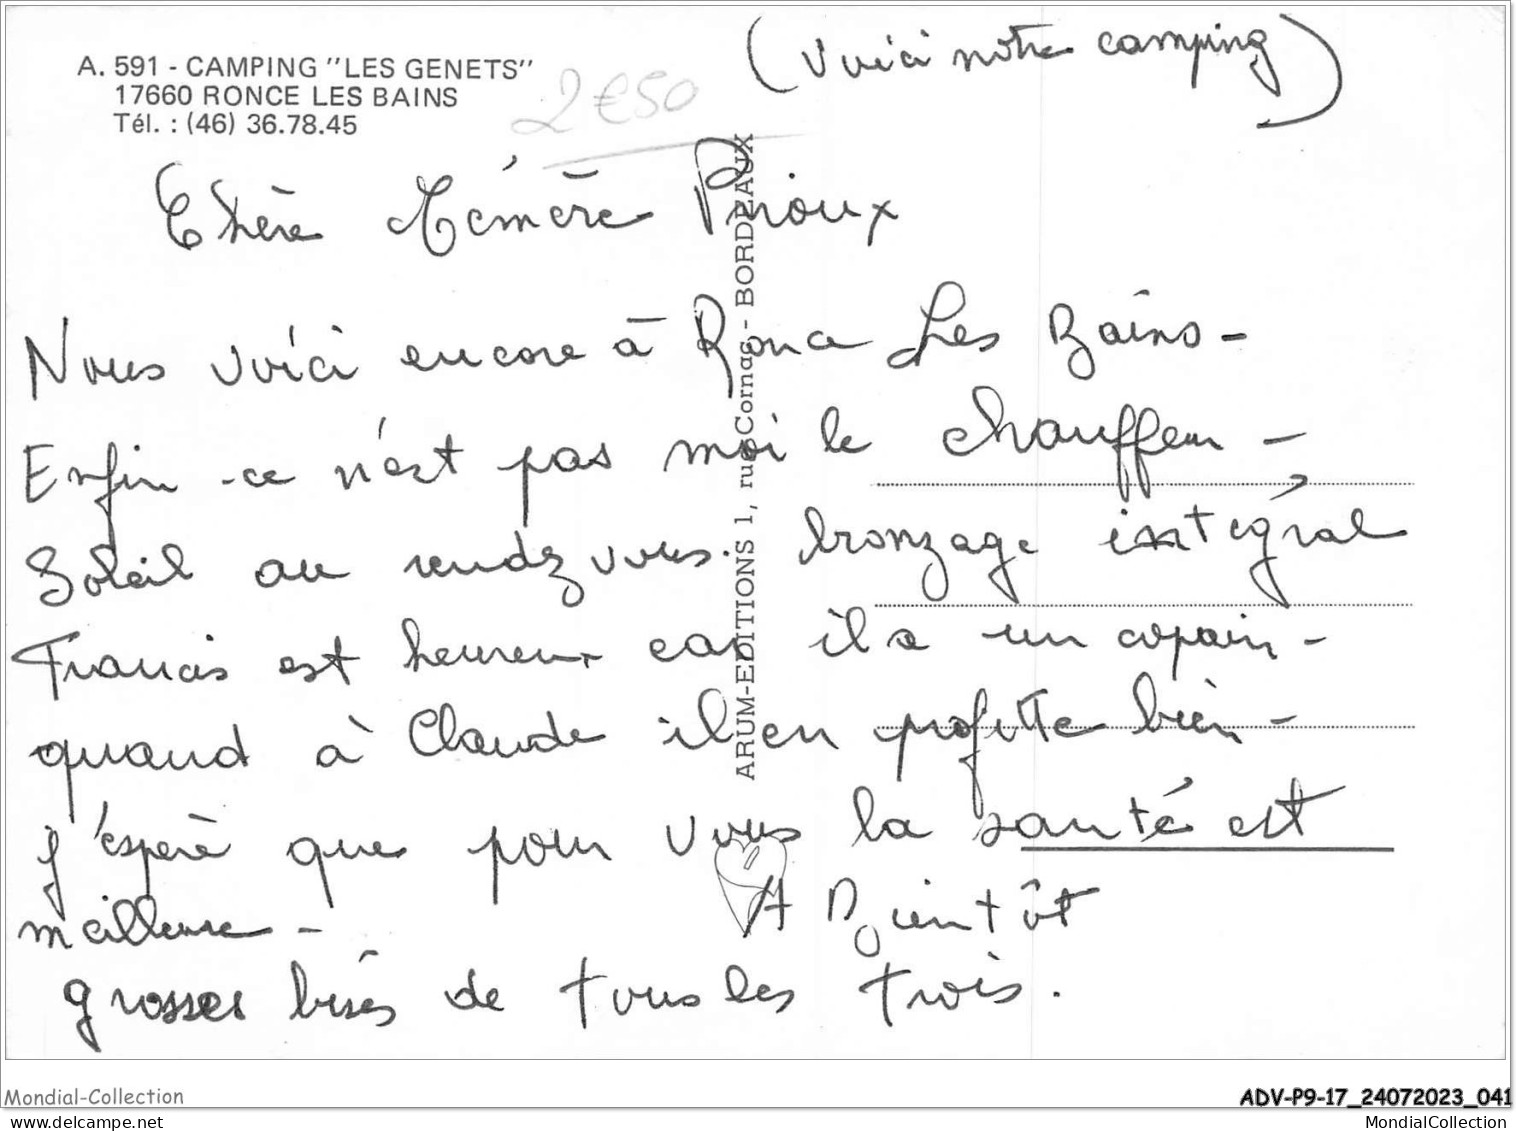 (Voici notre camping)
A. 591 - CAMPING "LES GENETS"
17660 RONCE LES BAINS
Tél. : (46) 36.78.45
2€50
Chère Mémère Prioux
Nous voici encore à Ronce Les Bains -
Enfin - ce n'est pas moi le chauffeur -
Soleil au rendez vous. bronzage intégral
Francis est heureux car il a un copain -
quand à Claude il en profite bien -
j'espère que pour vous la santé est
meilleure -
A Bientôt
grosses bises de tous les trois.
ARUM-EDITIONS 1, rue Cornac - BORDEAUX
Mondial-Collection
ADV-P9-17_24072023_041
mondial-collection.com
MondialCollection